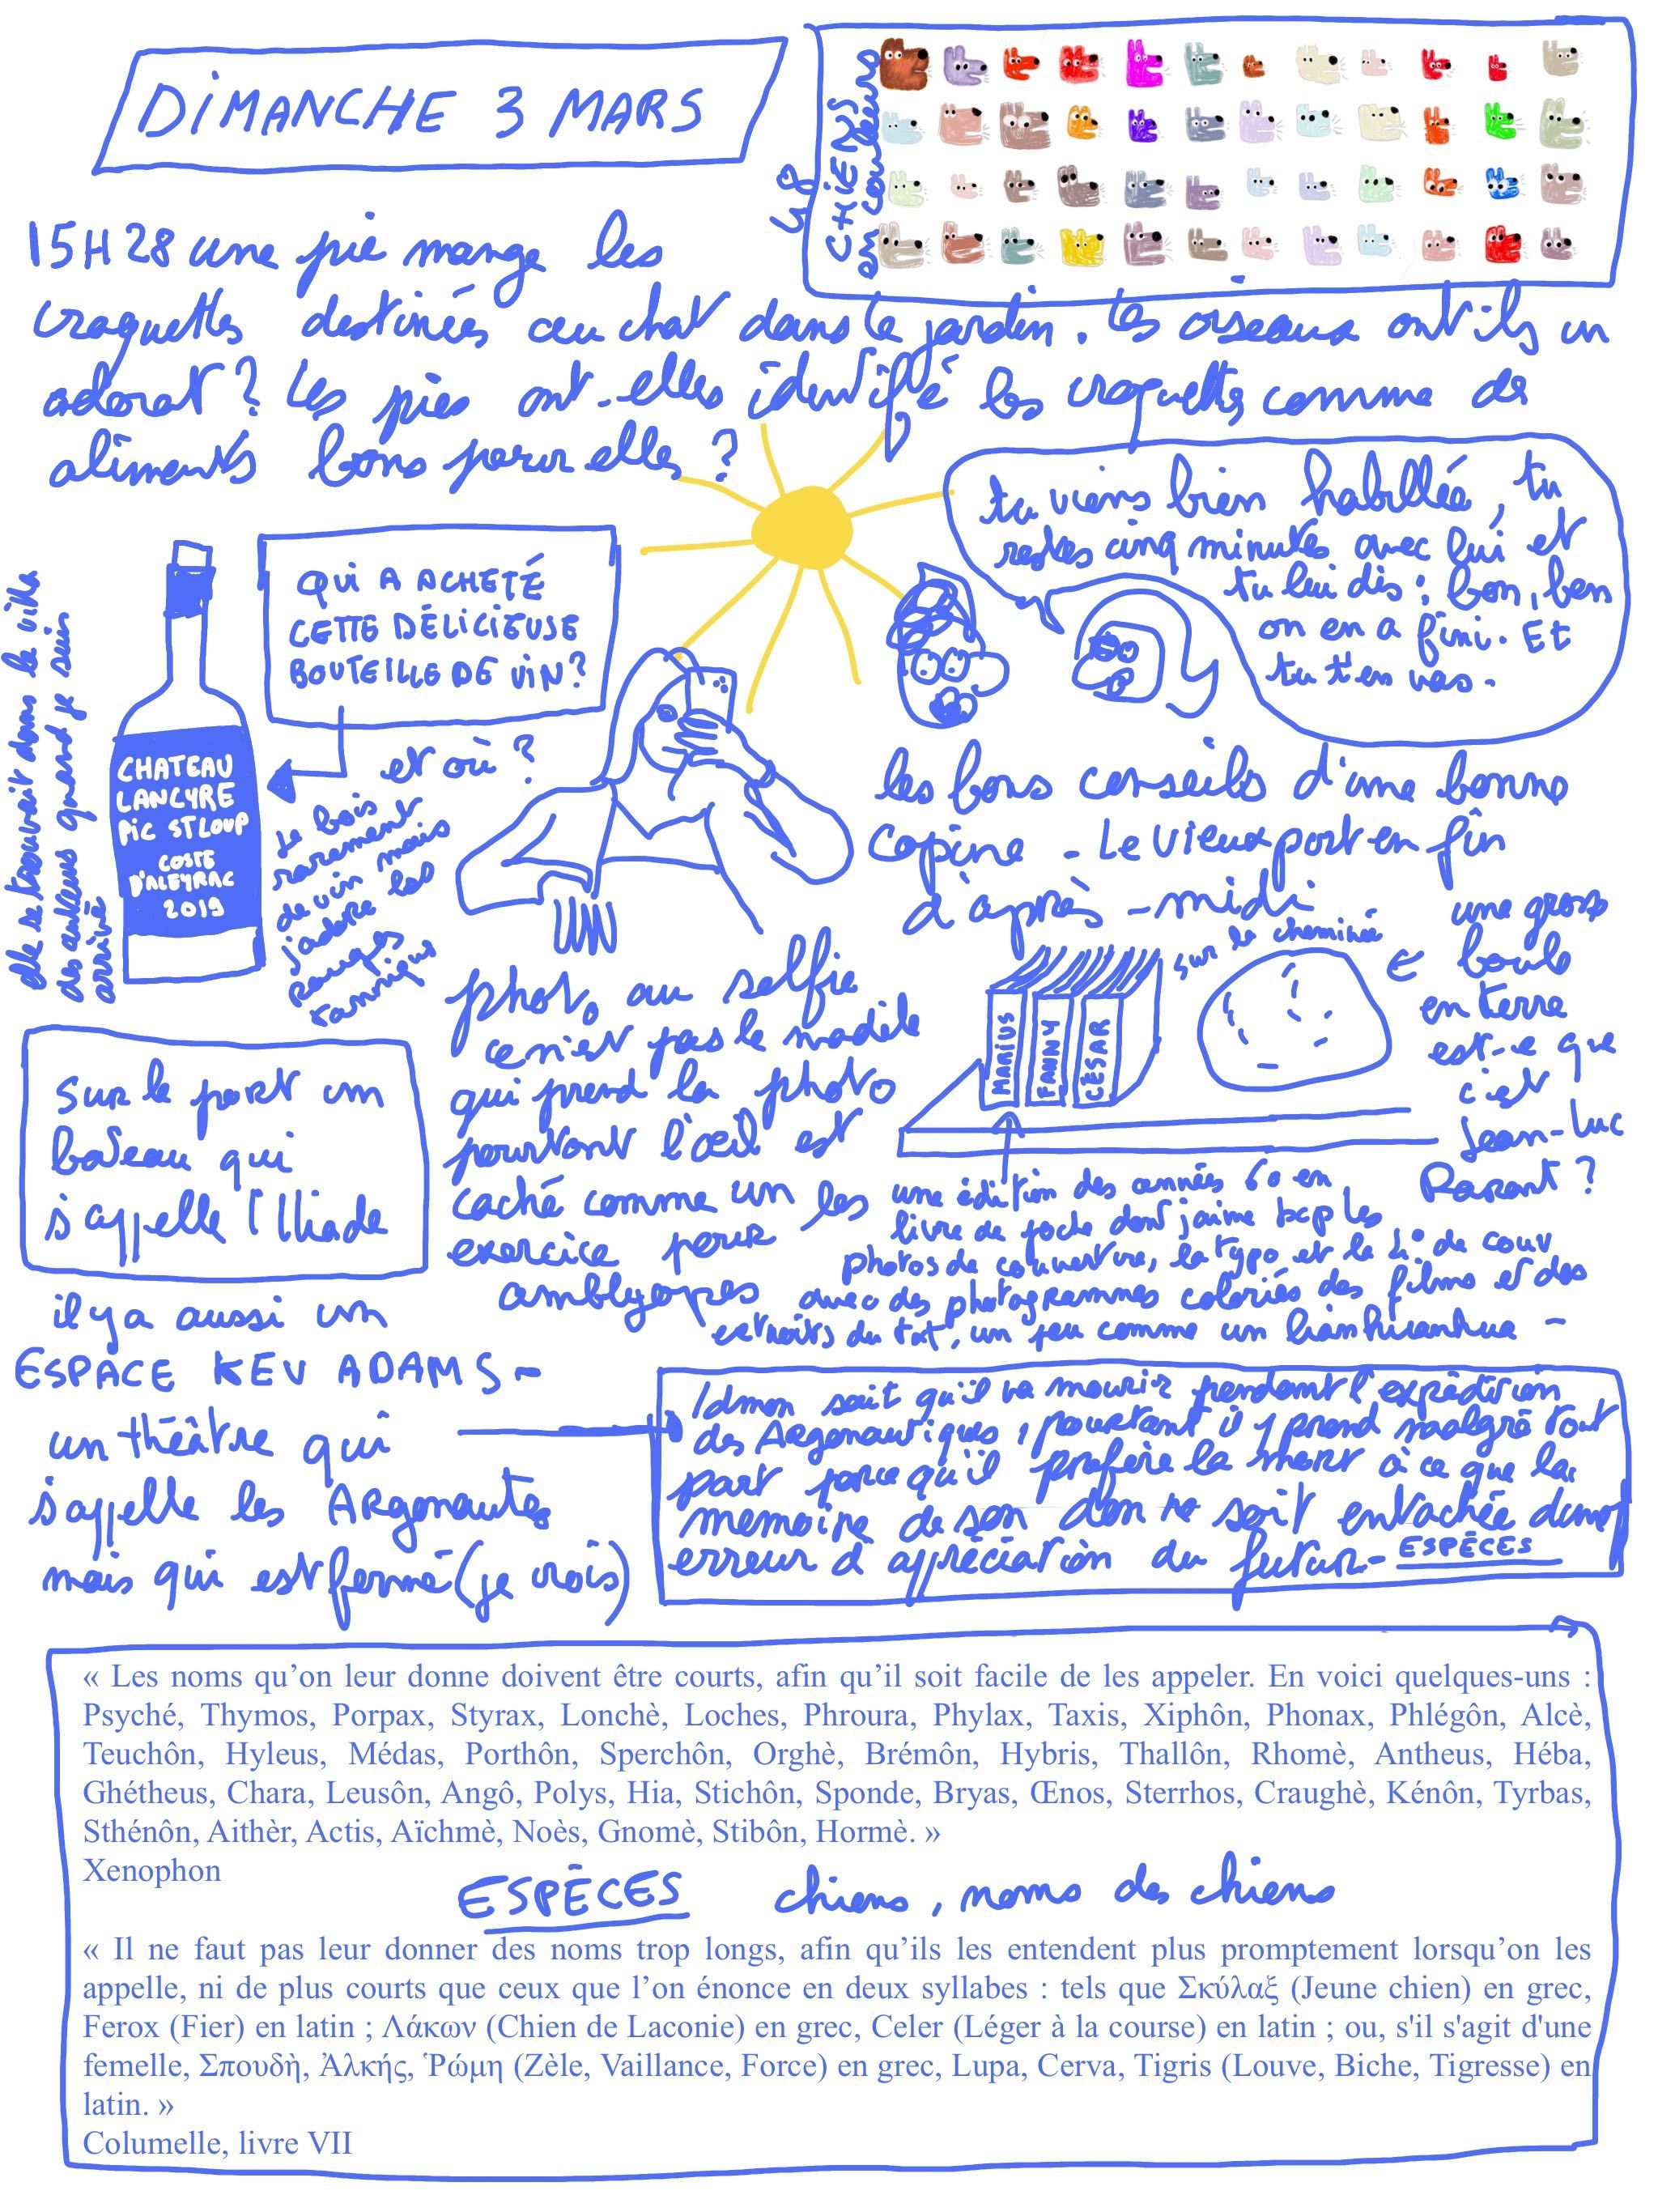 DIMANCHE 3 MARS
48
CHIENS
en couleurs
15H28 une pie mange les
craquettes destinées au chat dans le jardin. Les oiseaux ont-ils un
odorat ? Les pies ont-elles identifié les croquettes comme des
aliments bons pour elles ?
tu viens bien habillée, tu
restes cinq minutes avec lui et
tu lui dis : bon, ben
on en a fini. Et
tu t'en vas.
QUI A ACHETÉ
CETTE DÉLICIEUSE
BOUTEILLE DE VIN ?
et où ?
CHATEAU
LANCYRE
PIC ST LOUP
COSTE
D'ALEYRAC
2019
elle se trouvait dans la villa
des auteurs quand je suis
arrivée
Je bois
rarement
de vin mais
j'adore les
rouges
tanniques
les bons conseils d'une bonne
copine - Le vieux port en fin
d'après-midi
photo au selfie
ce n'est pas le modèle
qui prend la photo
pourtant l'œil est
caché comme un
exercice pour les
amblyopes
MARIUS
FANNY
CÉSAR
sur la cheminée
une grosse
boule
en terre
est-ce que
c'est
Jean-Luc
Parant ?
une édition des années 60 en
livre de poche dont j'aime bcp les
photos de couverture, la typo et la 4e de couv
avec des photogrammes coloriés des films et des
extraits du txt, un peu comme un
Sur le port un
bateau qui
s'appelle l'Iliade
il y a aussi un
ESPACE KEV ADAMS -
un théâtre qui
s'appelle les Argonautes
mais qui est fermé (je crois)
Idmon sait qu'il va mourir pendant l'expédition
des Argonautiques, pourtant il y prend malgré tout
part parce qu'il préfère la mort à ce que la
memoire de son don ne soit entachée d'une
erreur d'appréciation du futur - ESPÈCES
« Les noms qu'on leur donne doivent être courts, afin qu'il soit facile de les appeler. En voici quelques-uns :
Psyché, Thymos, Porpax, Styrax, Lonchè, Loches, Phroura, Phylax, Taxis, Xiphôn, Phonax, Phlégôn, Alcè,
Teuchôn, Hyleus, Médas, Porthôn, Sperchôn, Orghè, Brémôn, Hybris, Thallôn, Rhomè, Antheus, Héba,
Ghétheus, Chara, Leusôn, Angô, Polys, Hia, Stichôn, Sponde, Bryas, Œnos, Sterrhos, Craughè, Kénôn, Tyrbas,
Sthénôn, Aithèr, Actis, Aïchmè, Noès, Gnomè, Stibôn, Hormè. »
Xenophon
ESPÈCES chiens, noms des chiens
« Il ne faut pas leur donner des noms trop longs, afin qu'ils les entendent plus promptement lorsqu'on les
appelle, ni de plus courts que ceux que l'on énonce en deux syllabes : tels que Σκύλαξ (Jeune chien) en grec,
Ferox (Fier) en latin ; Λάκων (Chien de Laconie) en grec, Celer (Léger à la course) en latin ; ou, s'il s'agit d'une
femelle, Σπουδὴ, Ἀλκής, Ῥώμη (Zèle, Vaillance, Force) en grec, Lupa, Cerva, Tigris (Louve, Biche, Tigresse) en
latin. »
Columelle, livre VII